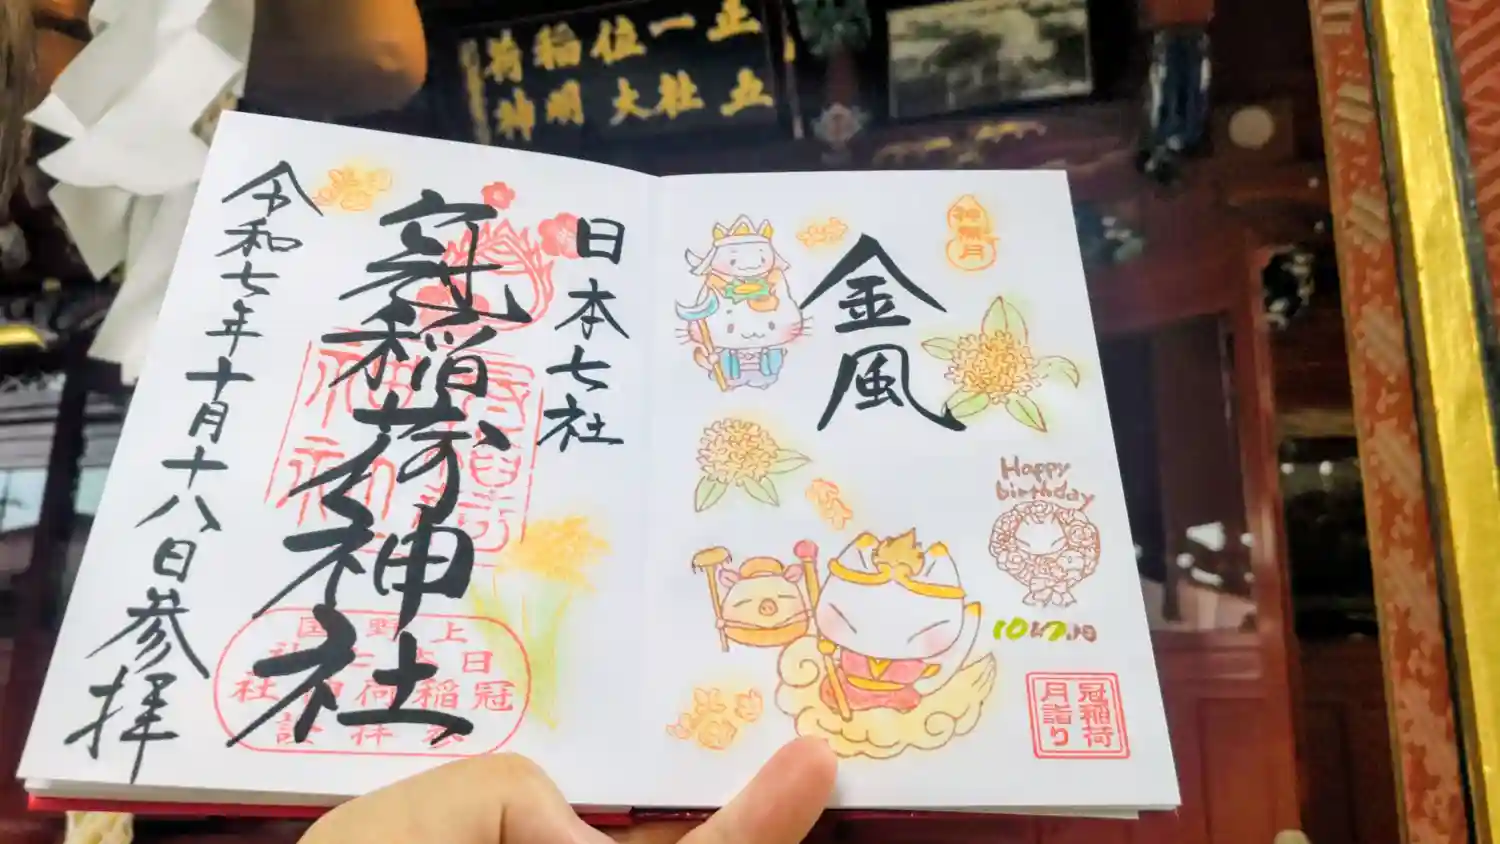 正一位稲荷
正大社明神
日本七社
冠稲荷神社
令和七年十月十八日参拝
上野国
日本七社
冠稲荷神社
参拝
神無月
金風
Happy
birthday
冠稲荷
月詣り